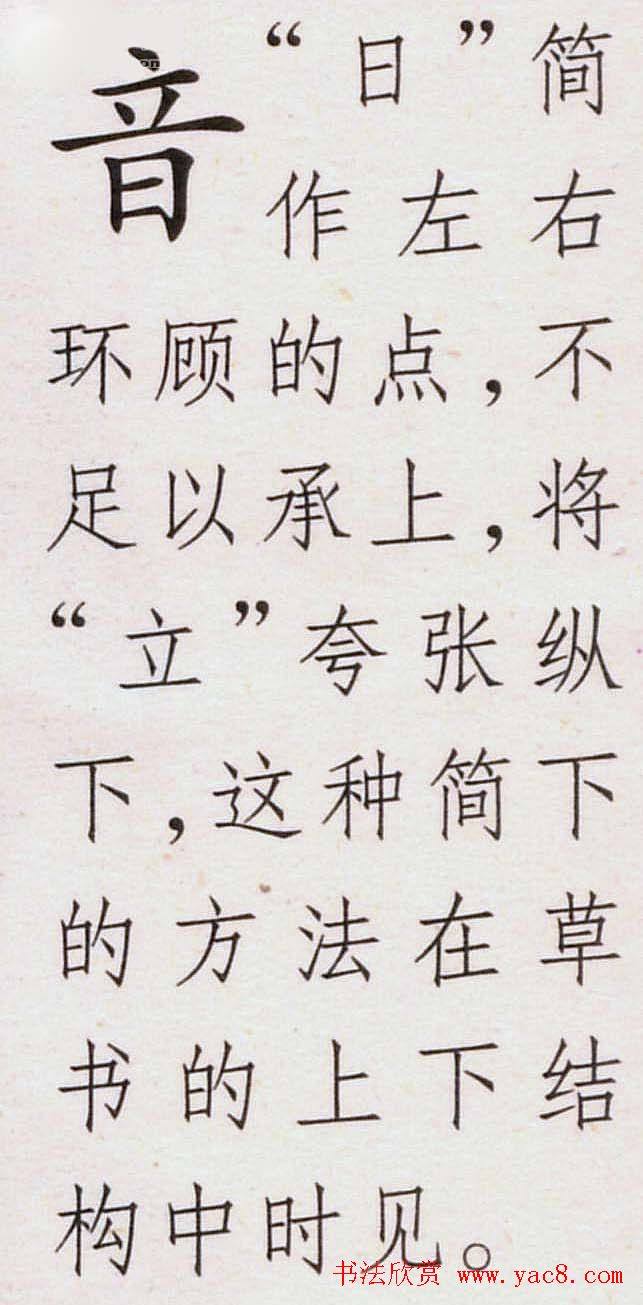 音
“日”简
作左右
环顾的点,不
足以承上,将
“立”夸张纵
下,这种简下
的方法在草
书的上下结
构中时见。
书法欣赏 www.yac8.com